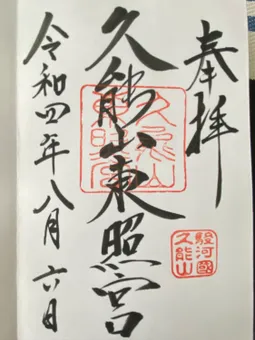 奉拝
久能山東照宮
令和四年八月六日
久能山東照宮
駿河國
久能山